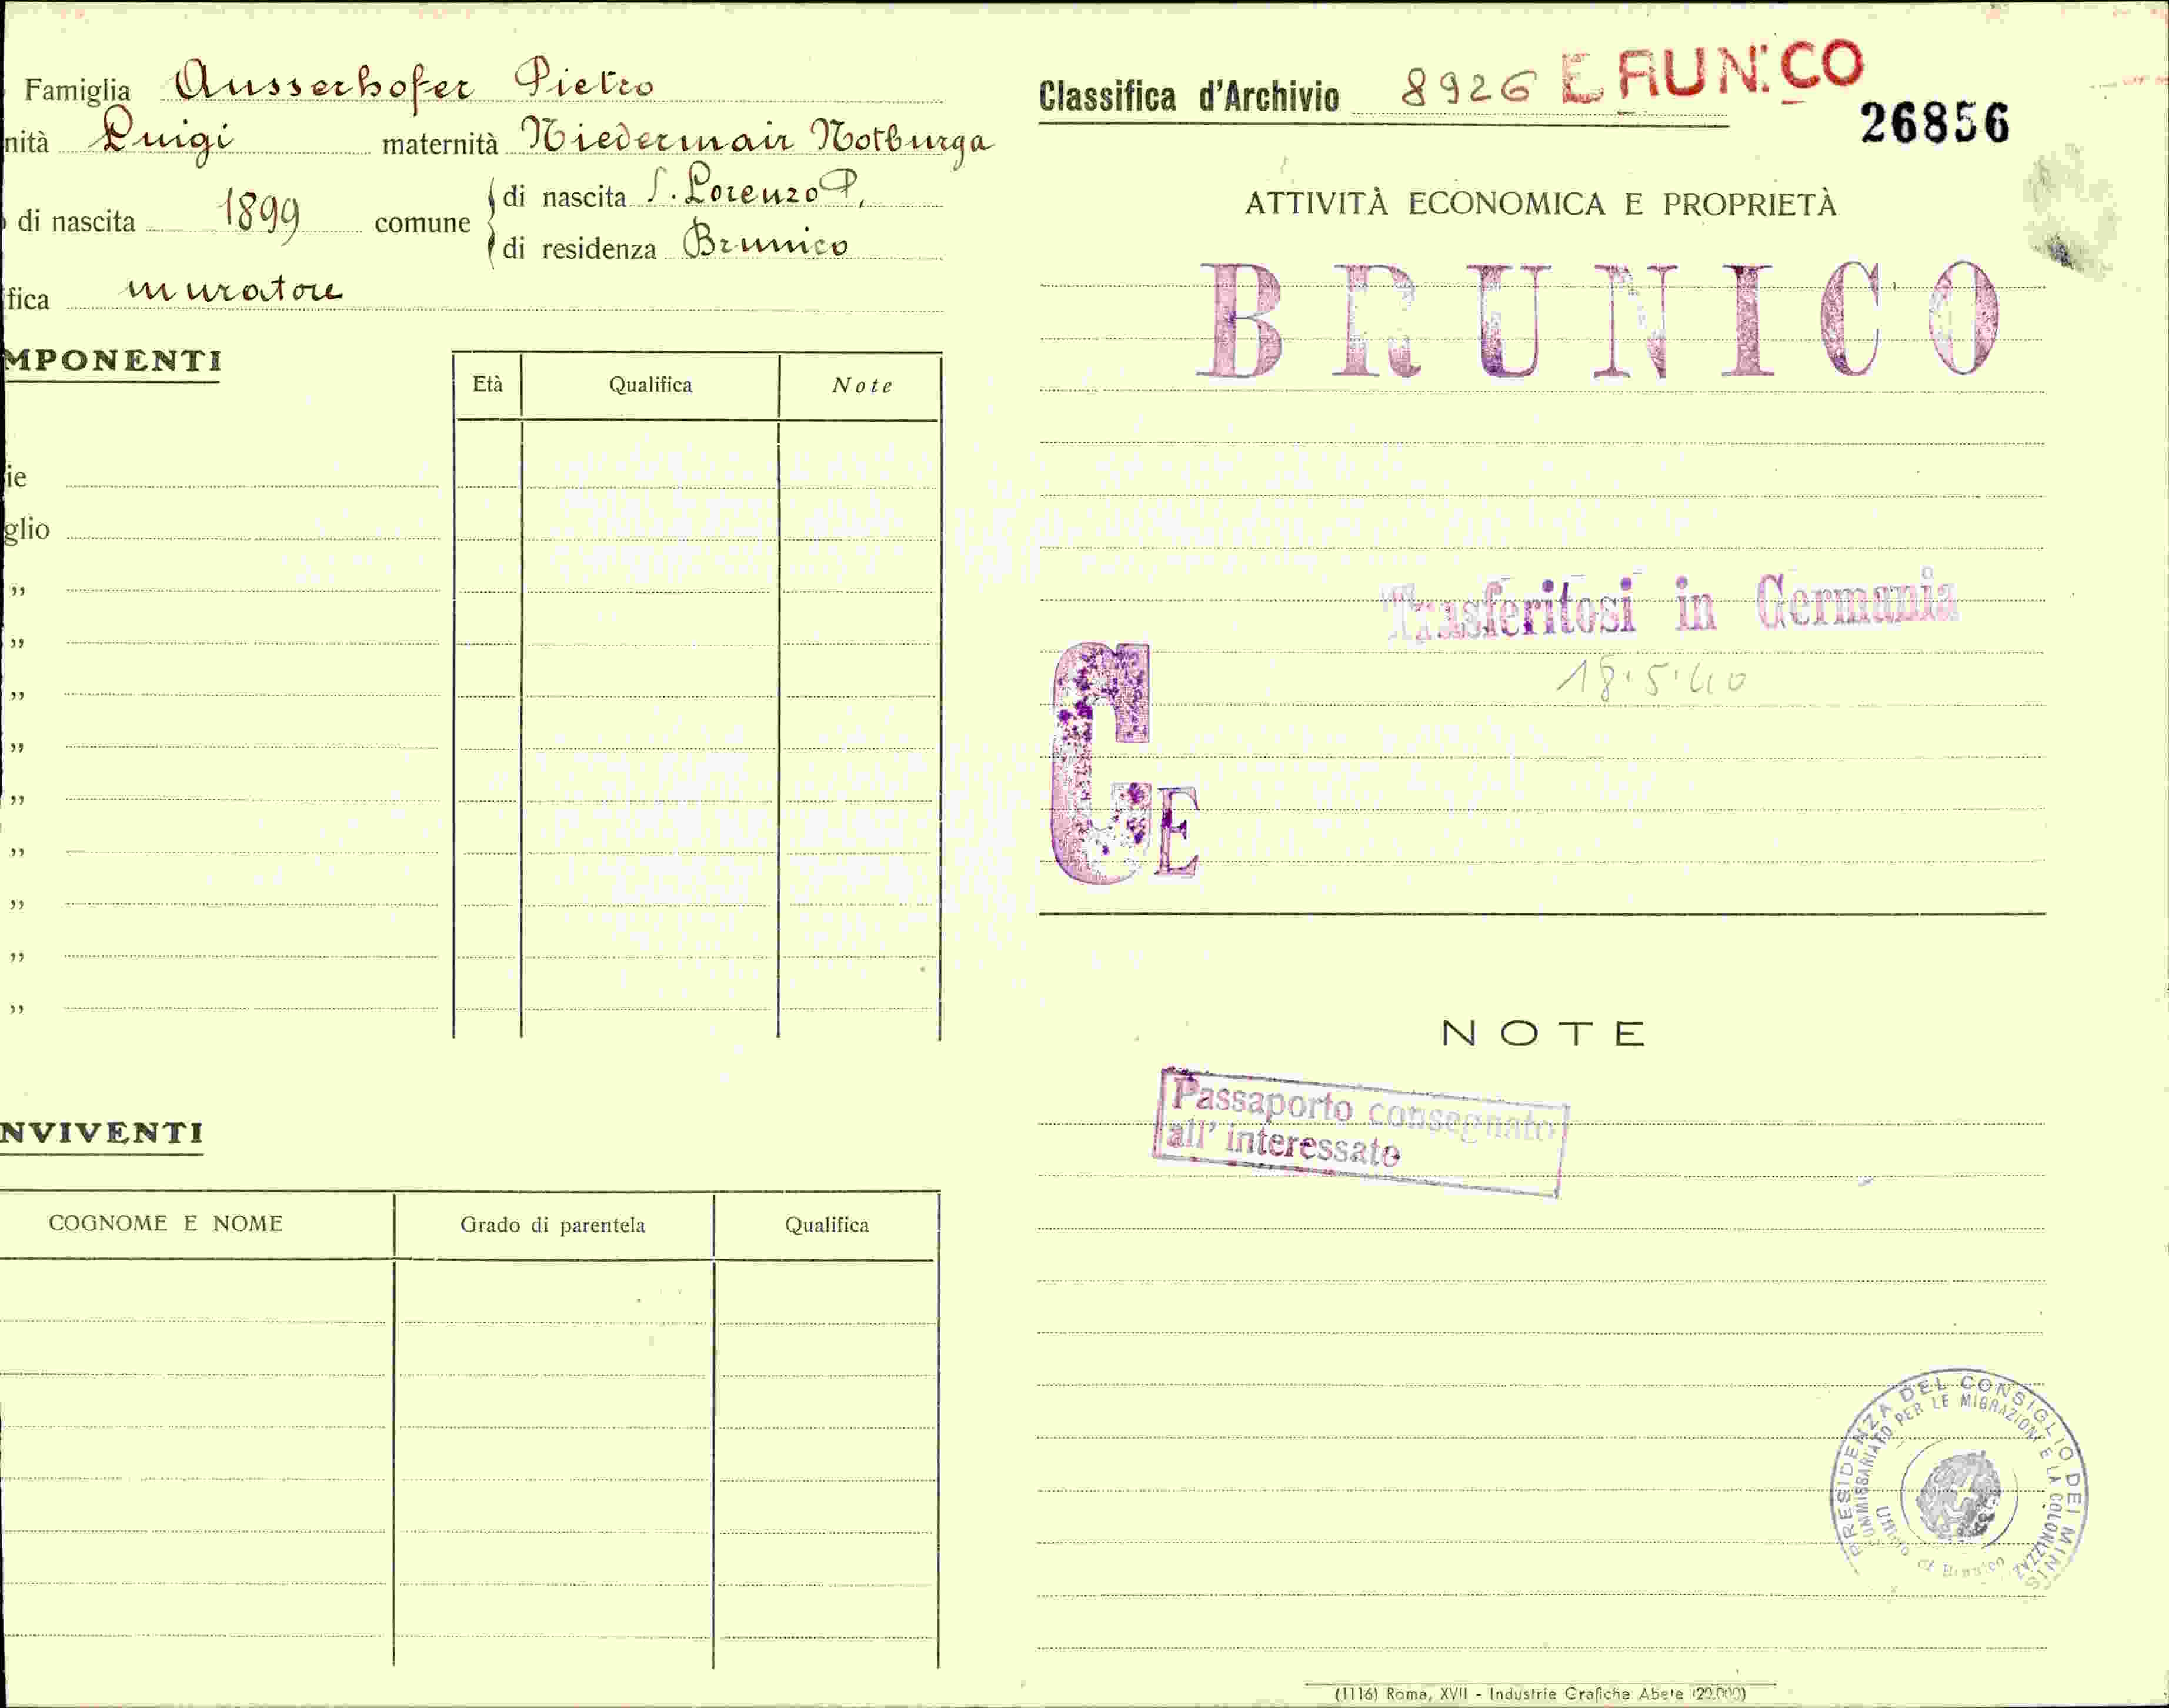 Famiglia Ausserhofer Pietro
nità Luigi maternità Niedermair Notburga
di nascita 1899 comune di nascita S. Lorenzo P.
di residenza Brunico
fica muratore
MPONENTI
Età Qualifica Note
ie
glio
"
"
"
"
"
"
"
"
"
NVIVENTI
COGNOME E NOME Grado di parentela Qualifica
Classifica d'Archivio 8926 BRUNICO
26856
ATTIVITÀ ECONOMICA E PROPRIETÀ
BRUNICO
Trasferitosi in Germania
18.5.40
GE
NOTE
Passaporto consegnato
all' interessato
PRESIDENZA DEL CONSIGLIO DEI MINIS
COMMISSARIATO PER LE MIGRAZIONI E LA COLONIZZAZ
Ufficio di Brunico
(1116) Roma, XVII - Industrie Grafiche Abete (20.000)